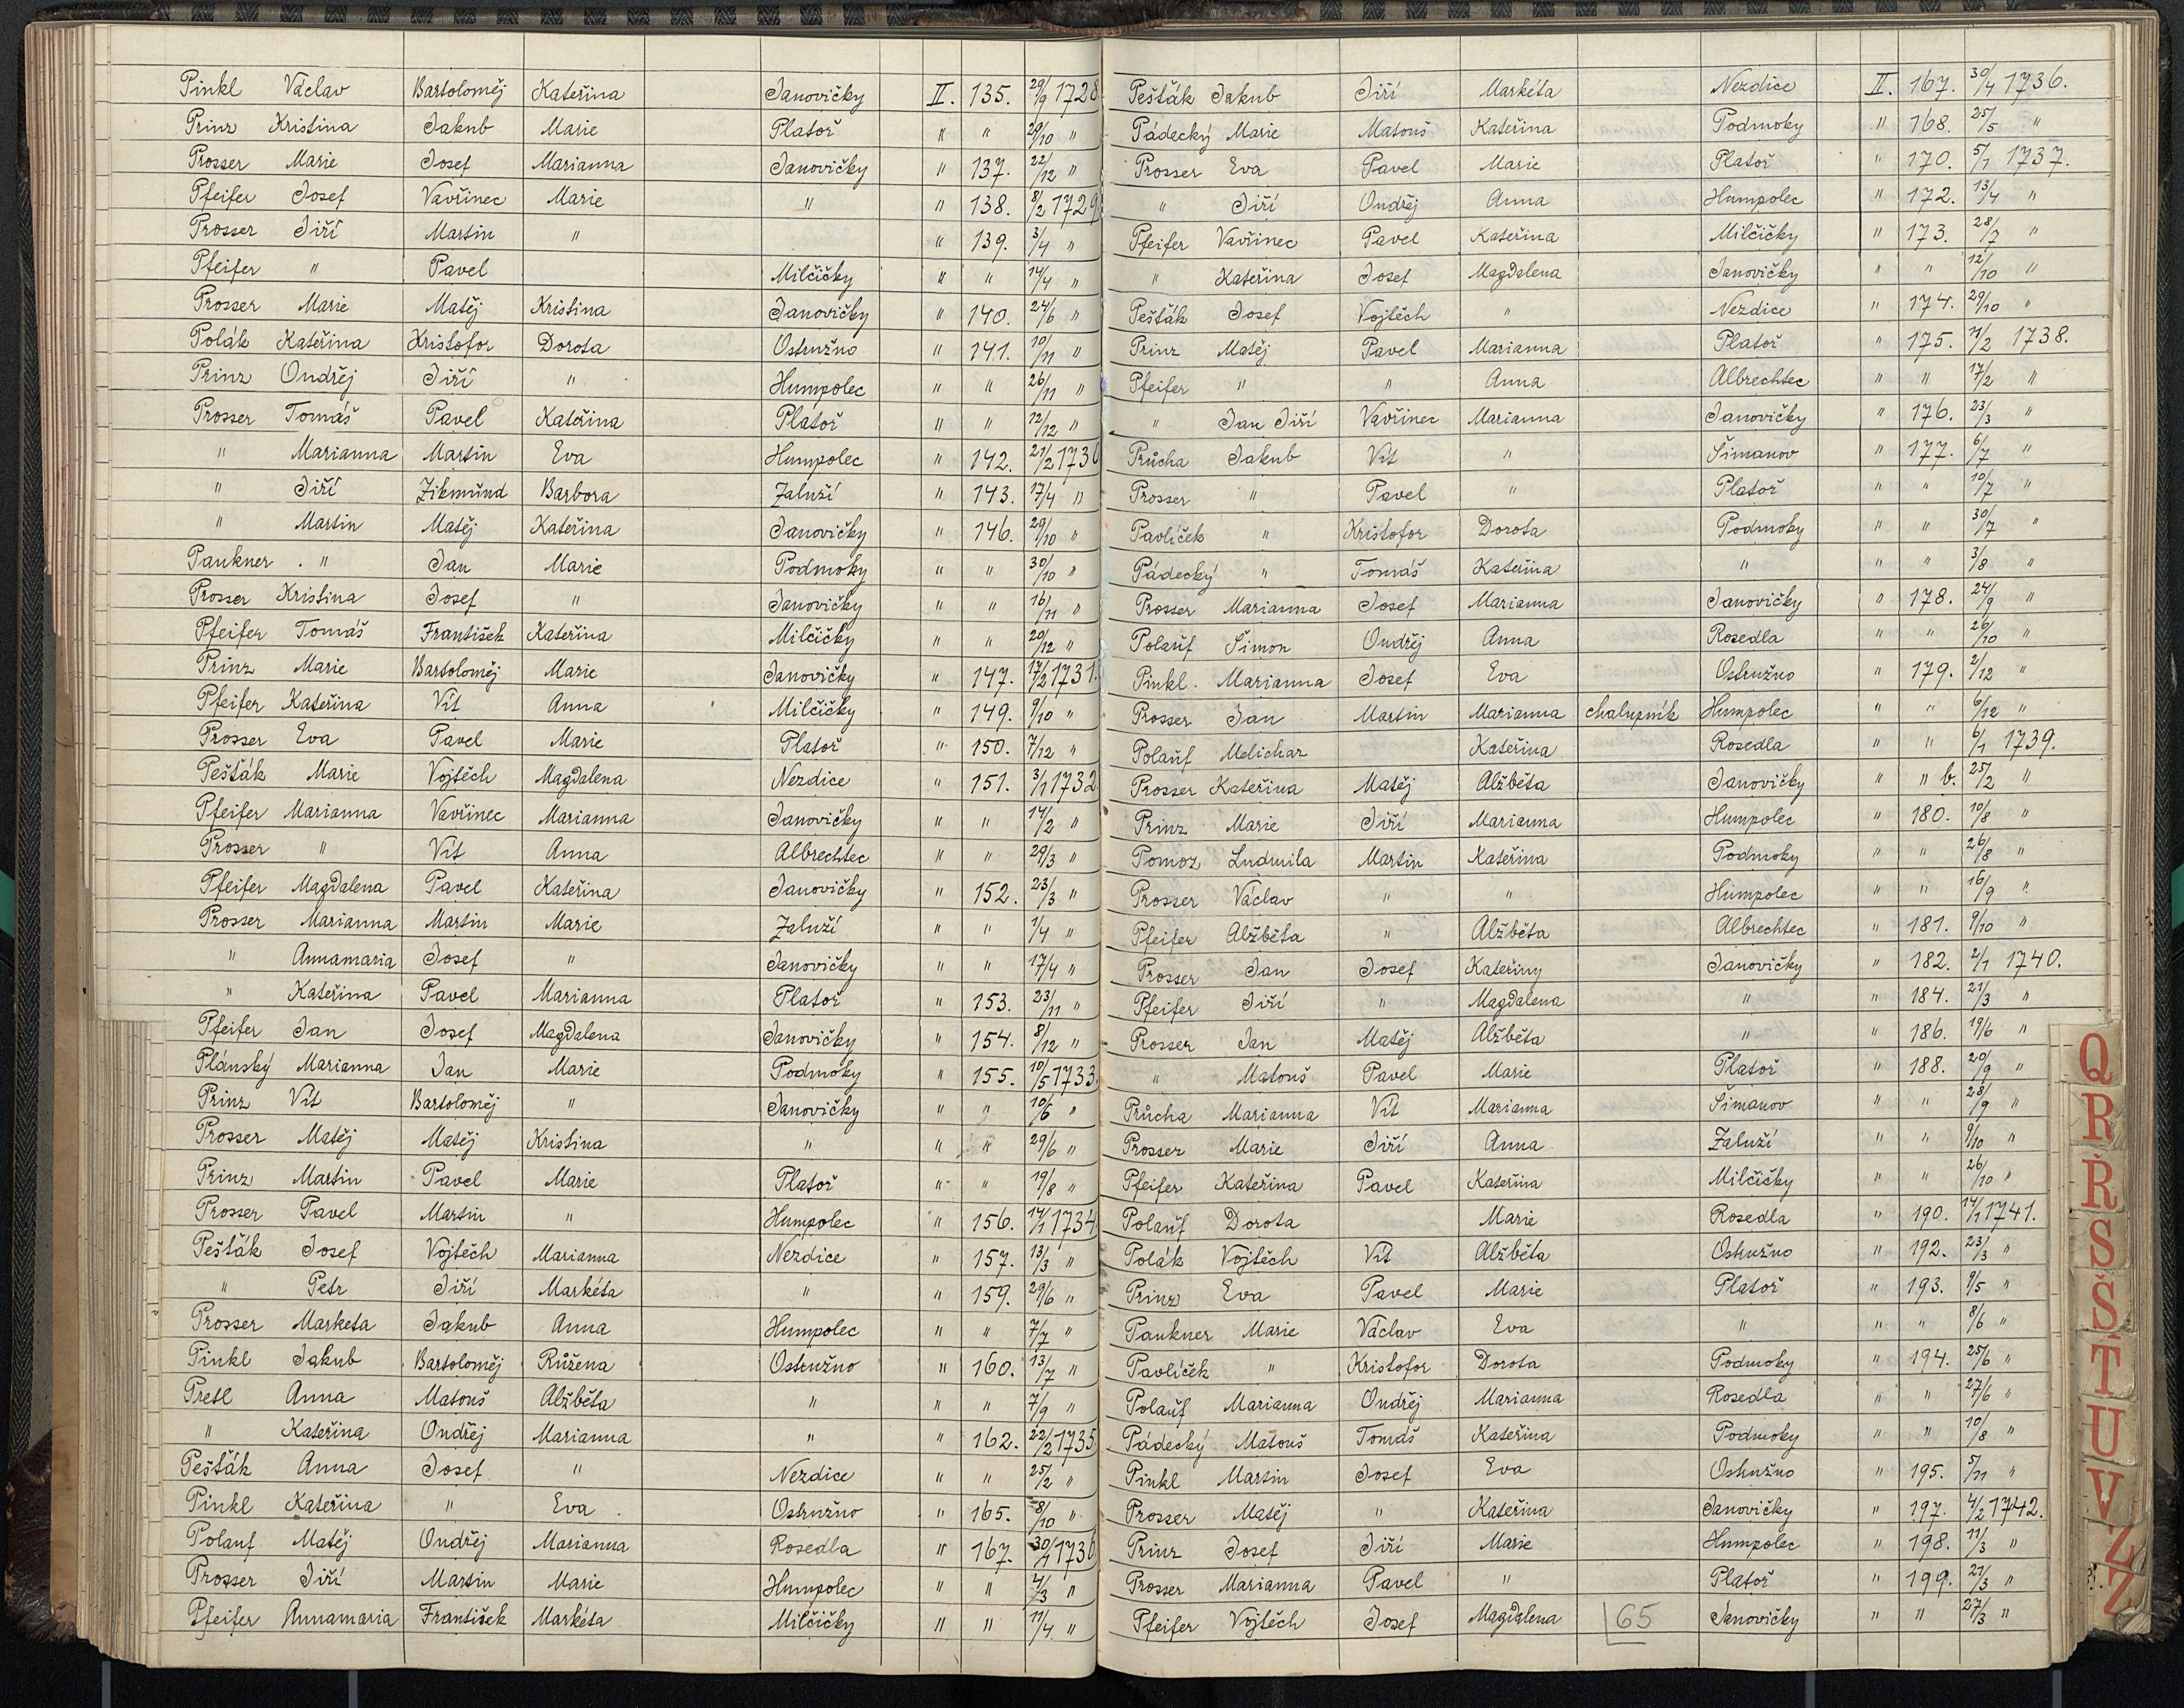 Pinkl Václav Bartoloměj Kateřina Janovičky II. 135. 29/9 1728
Prinz Kristina Jakub Marie Platoř " " 29/10 "
Prosser Marie Josef Marianna Janovičky " 137. 22/12 "
Pfeifer Josef Vavřinec Marie " " 138. 8/2 1729
Prosser Jiří Martin " " 139. 3/4 "
Pfeifer " Pavel Milčičky " " 14/4 "
Prosser Marie Matěj Kristina Janovičky " 140. 24/6 "
Polák Kateřina Kristofor Dorota Ostružno " 141. 10/11 "
Prinz Ondřej Jiří " Humpolec " " 26/11 "
Prosser Tomáš Pavel Kateřina Platoř " " 12/12 "
" Marianna Martin Eva Humpolec " 142. 21/2 1730
" Jiří Zikmund Barbora Zaluží " 143. 17/4 "
" Martin Matěj Kateřina Janovičky " 146. 29/10 "
Paukner " Jan Marie Podmoky " " 30/10 "
Prosser Kristina Josef " Janovičky " " 16/11 "
Pfeifer Tomáš František Kateřina Milčičky " " 20/12 "
Prinz Marie Bartoloměj Marie Janovičky " 147. 17/2 1731.
Pfeifer Kateřina Vít Anna Milčičky " 149. 9/10 "
Prosser Eva Pavel Marie Platoř " 150. 7/12 "
Pešťák Marie Vojtěch Magdalena Nezdice " 151. 3/1 1732
Pfeifer Marianna Vavřinec Marianna Janovičky " " 14/2 "
Prosser " Vít Anna Albrechtec " " 29/3 "
Pfeifer Magdalena Pavel Kateřina Janovičky " 152. 23/3 "
Prosser Marianna Martin Marie Zaluží " " 1/4 "
" Annamaria Josef " Janovičky " " 17/4 "
" Kateřina Pavel Marianna Platoř " 153. 23/11 "
Pfeifer Jan Josef Magdalena Janovičky " 154. 8/12 "
Plánský Marianna Jan Marie Podmoky " 155. 10/5 1733.
Prinz Vít Bartoloměj " Janovičky " " 10/6 "
Prosser Matěj Matěj Kristina " " " 29/6 "
Prinz Martin Pavel Marie Platoř " " 19/8 "
Prosser Pavel Martin " Humpolec " 156. 14/1 1734.
Pešťák Josef Vojtěch Marianna Nezdice " 157. 13/3 "
" Petr Jiří Markéta " " 159. 29/6 "
Prosser Marketa Jakub Anna Humpolec " " 7/7 "
Pinkl Jakub Bartoloměj Růžena Ostružno " 160. 13/7 "
Pretl Anna Matouš Alžběta " " " 7/9 "
" Kateřina Ondřej Marianna " " 162. 22/2 1735
Pešťák Anna Josef " Nezdice " " 25/2 "
Pinkl Kateřina " Eva Ostružno " 165. 8/10 "
Polauf Matěj Ondřej Marianna Rosedla " 167. 30/1 1736
Prosser Jiří Martin Marie Humpolec " " 4/3 "
Pfeifer Annamaria František Markéta Milčičky " " 11/4 "
Pešťák Jakub Jiří Markéta Nezdice II. 167. 30/4 1736.
Pádecký Marie Matouš Kateřina Podmoky " 168. 25/5 "
Prosser Eva Pavel Marie Platoř " 170. 5/1 1737.
" Jiří Ondřej Anna Humpolec " 172. 13/4 "
Pfeifer Vavřinec Pavel Kateřina Milčičky " 173. 28/7 "
" Kateřina Josef Magdalena Janovičky " " 12/10 "
Pešťák Josef Vojtěch " Nezdice " 174. 29/10 "
Prinz Matěj Pavel Marianna Platoř " 175. 11/2 1738.
Pfeifer " " Anna Albrechtec " " 17/2 "
" Jan Jiří Vavřinec Marianna Janovičky " 176. 23/3 "
Průcha Jakub Vít " Šimanov " 177. 6/7 "
Prosser " Pavel " Platoř " " 10/7 "
Pavlíček " Kristofor Dorota Podmoky " " 30/7 "
Pádecký " Tomáš Kateřina " " " 3/8 "
Prosser Marianna Josef Marianna Janovičky " 178. 24/9 "
Polauf Šimon Ondřej Anna Rosedla " " 26/10 "
Pinkl. Marianna Josef Eva Ostružno " 179. 2/12 "
Prosser Jan Martin Marianna chalupník Humpolec " " 6/12 "
Polauf Melichar Kateřina Rosedla " " 6/1 1739.
Prosser Kateřina Matěj Alžběta Janovičky " " b. 25/2 "
Prinz Marie Jiří Marianna Humpolec " 180. 10/8 "
Pomoz Ludmila Martin Kateřina Podmoky " " 26/8 "
Prosser Václav " " Humpolec " " 16/9 "
Pfeifer Alžběta " Alžběta Albrechtec " 181. 9/10 "
Prosser Jan Josef Kateřiny Janovičky " 182. 2/1 1740.
Pfeifer Jiří " Magdalena " " 184. 21/3 "
Prosser Jan Matěj Alžběta " " 186. 19/6 "
" Matouš Pavel Marie Platoř " 188. 20/9 "
Průcha Marianna Vít Marianna Šimanov " " 28/9 "
Prosser Marie Jiří Anna Zaluží " " 9/10 "
Pfeifer Kateřina Pavel Kateřina Milčičky " " 26/10 "
Polauf Dorota Marie Rosedla " 190. 14/1 1741.
Polák Vojtěch Vít Alžběta Ostružno " 192. 23/3 "
Prinz Eva Pavel Marie Platoř " 193. 9/5 "
Paukner Marie Václav Eva " " " 8/6 "
Pavlíček " Kristofor Dorota Podmoky " 194. 25/6 "
Polauf Marianna Ondřej Marianna Rosedla " " 27/6 "
Pádecký Matouš Tomáš Kateřina Podmoky " " 10/8 "
Pinkl Martin Josef Eva Ostružno " 195. 5/11 "
Prosser Matěj " Kateřina Janovičky " 197. 4/2 1742.
Prinz Josef Jiří Marie Humpolec " 198. 11/3 "
Prosser Marianna Pavel " Platoř " 199. 21/3 "
Pfeifer Vojtěch Josef Magdalena 65 Janovičky " " 27/3 "
Q
R
Ř
S
Š
T
U
V
Z
Ž